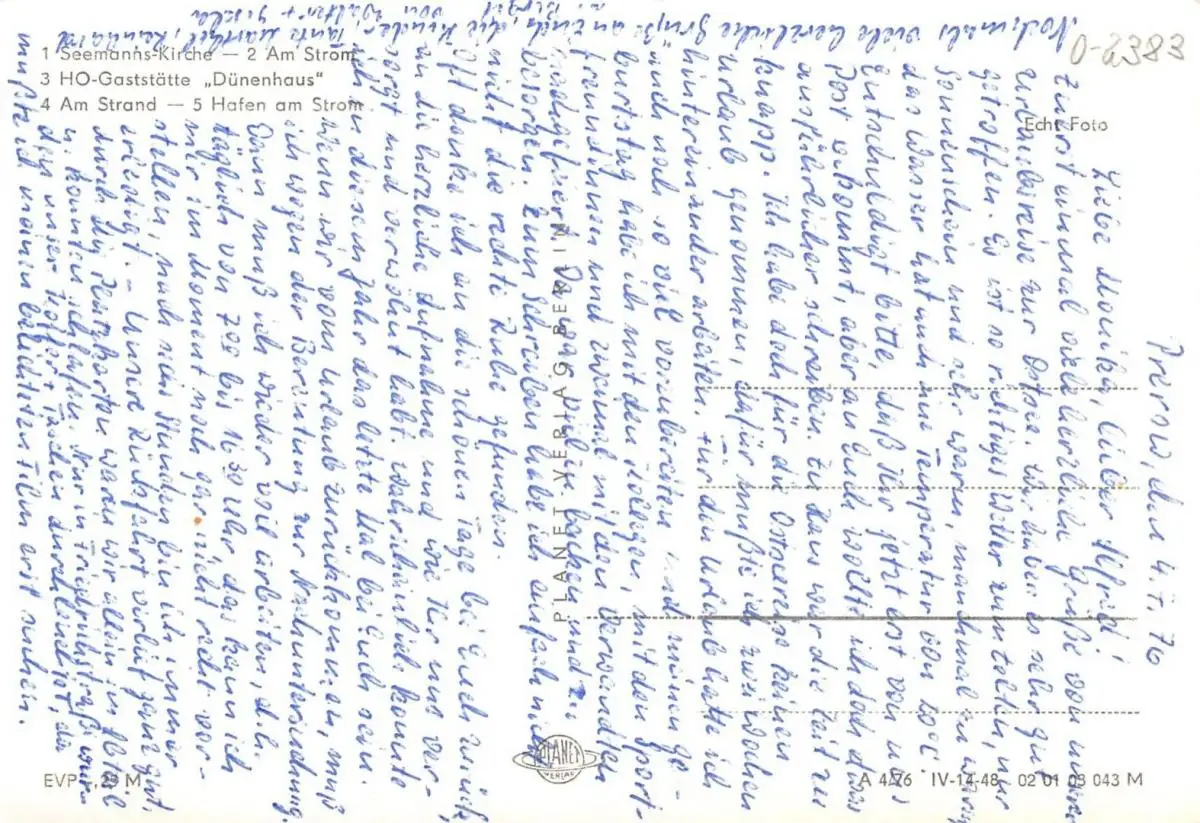 1 Seemanns-Kirche — 2 Am Strom
3 HO-Gaststätte „Dünenhaus"
4 Am Strand — 5 Hafen am Strom
Echt Foto
0-2383
Prerow, den 4.7.76
Liebe Monika, lieber Alfrid!
Zuerst einmal viele herzliche Grüße von unserer
Urlaubsreise zur Ostsee. Wir haben es sehr gut
getroffen. Es ist so richtiges Wetter zum
Sonnenschein und sehr warm, manchmal zu warm,
das Wasser hat nun eine Temperatur von 20°C
Entschuldigt bitte, daß Ihr jetzt erst von uns
Post bekommt, aber an Euch wollte ich doch etwas
ausführlicher schreiben. Zu Haus war die Zeit zu
knapp. Ich habe doch für die Ostseereise keinen
Urlaub genommen, dafür mußte ich zwei Wochen
hintereinander arbeiten. Für den Urlaub hatte ich
auch noch so viel vorzubereiten und meinen Ge-
burtstag habe ich mit den Kollegen, mit den Sport-
freundinnen und zweimal mit den Verwandten
Da gab viel zu backen und zu
besorgen. Zum Schreiben habe ich einfach nicht
mich die rechte Ruhe gefunden.
Oft denke ich an die schönen Tage bei Euch zurück,
an die herzliche Aufnahme und wie Ihr uns ver-
sorgt und verwöhnt habt. Wahrscheinlich konnte
ich in diesem Jahr das letzte Mal bei Euch sein.
Wenn wir vom Urlaub zurückkommen, muß
ich wegen der Berentung zur Nachuntersuchung.
Dann muß ich wieder voll arbeiten, d.h.
täglich von 7 00 bis 16 30 Uhr das kann ich
mir im Moment noch gar nicht recht vor-
stellen, nach sechs Stunden bin ich immer
erledigt. – Unsere Rückfahrt verlief ganz gut.
durch die Platzkarten waren wir allein im Abteil
u. konnten schlafen. Nur in Friedrichstraße wur-
den unser Koffer + Taschen durchleuchtet, da
mußte ich meinen belichteten Film erst suchen.
Nochmals viele herzliche Grüße an Euch, die Kinder, Tante
von Walter + Gisela
PLANET-VERLAG BERLIN
PLANET
VERLAG
EVP –,25 M
A 4/76 IV-14-48 02 01 03 043 M